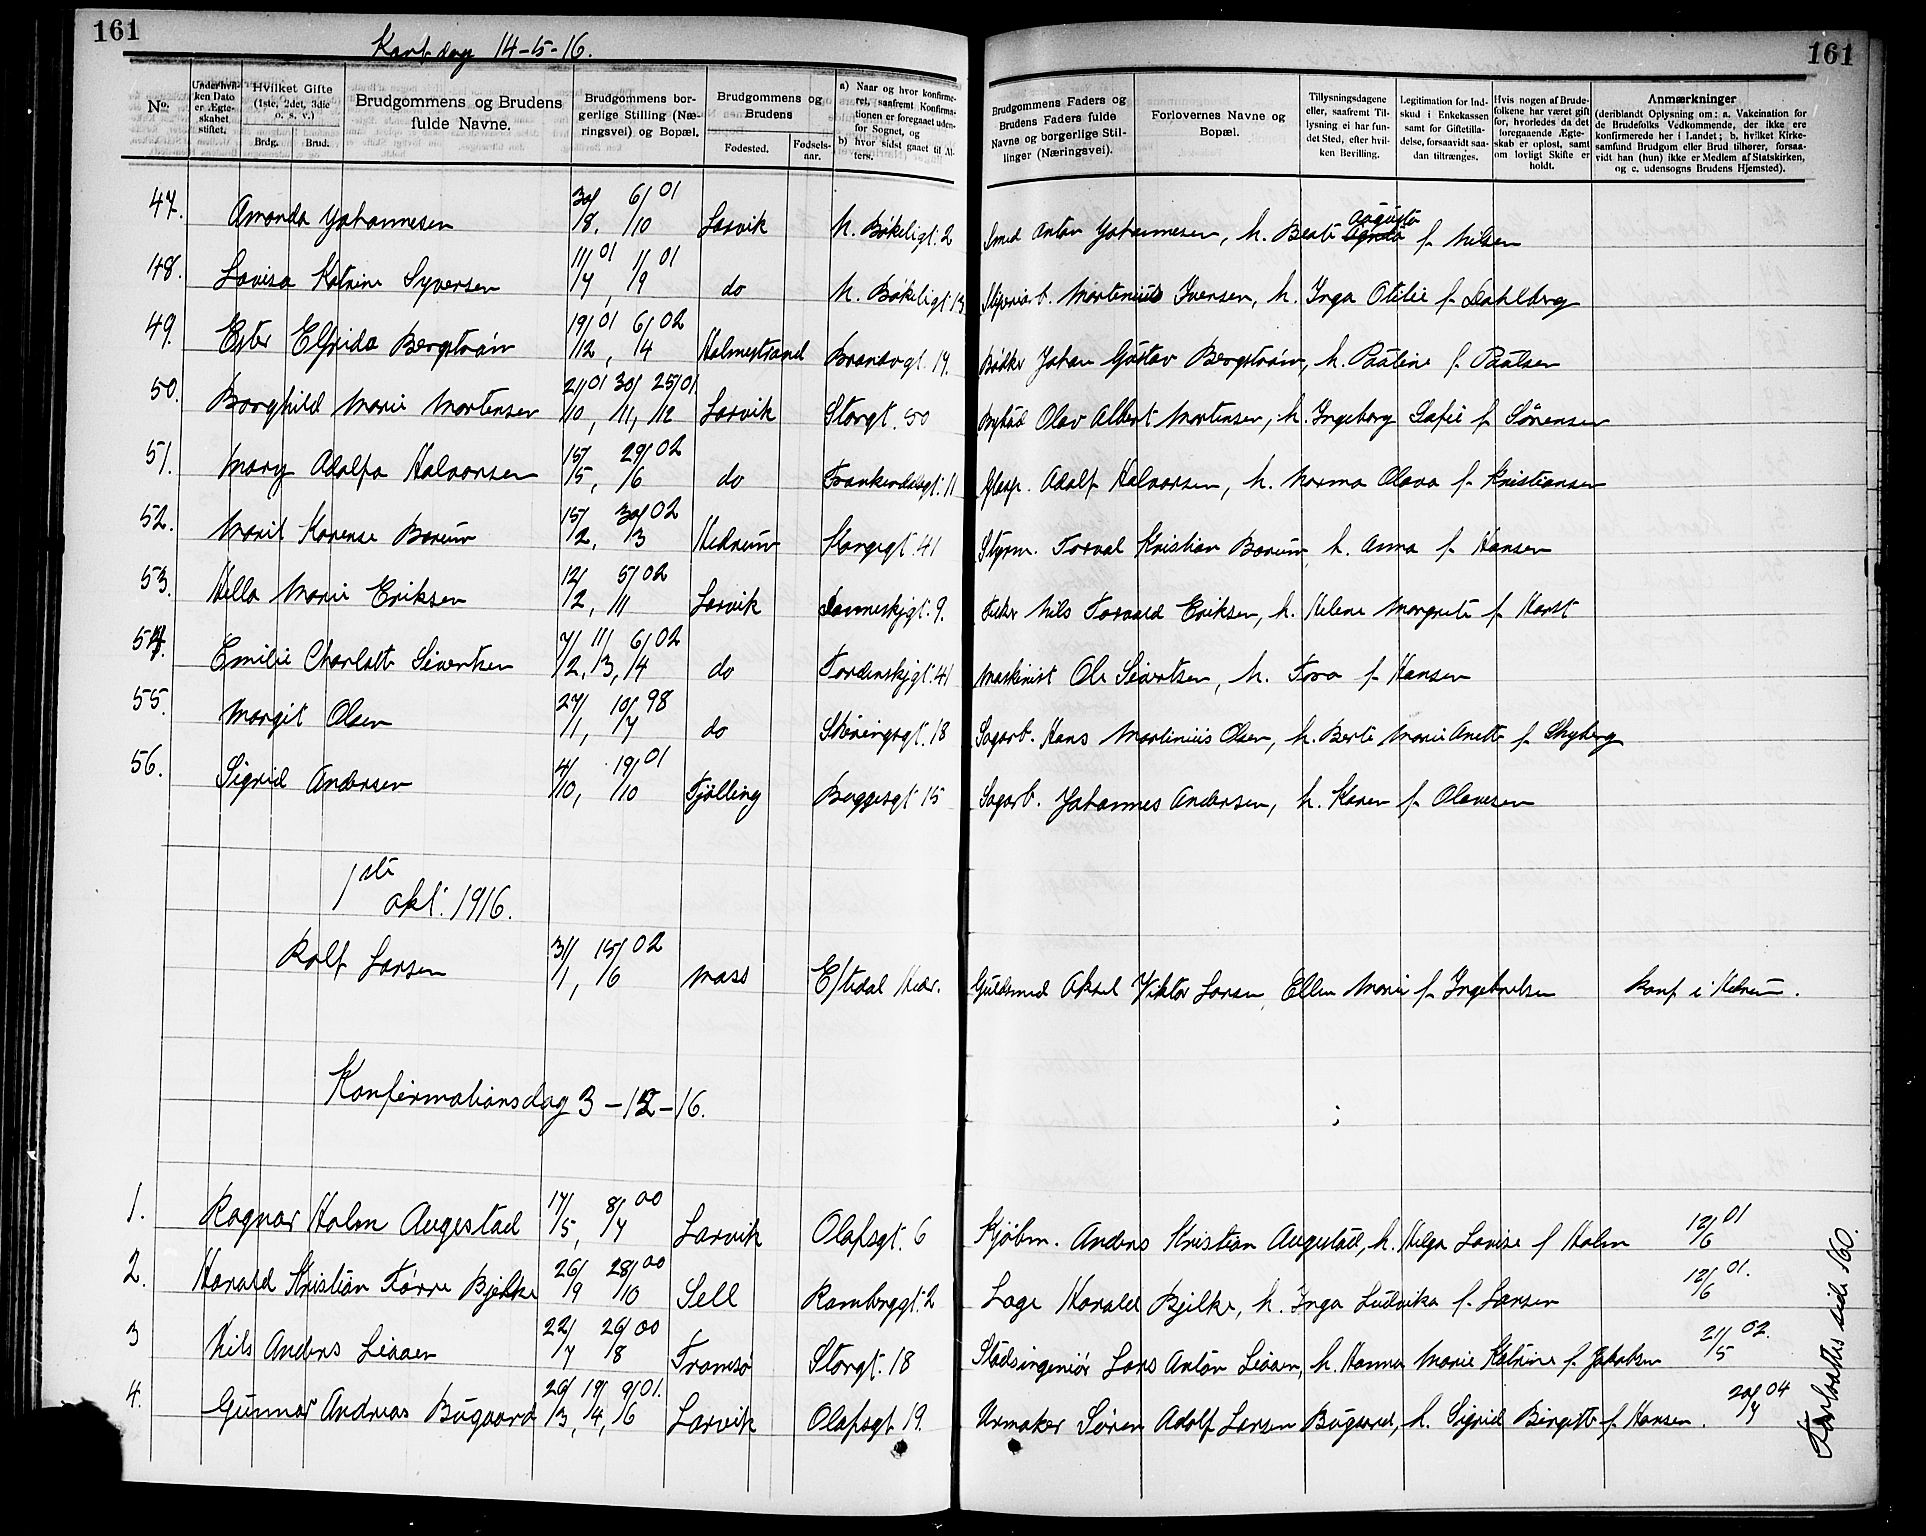 161
161
Konf. dag 14-5-16.
No.
Under hvilken Dato er Ægteskabet stiftet.
Hvilket Gifte (1ste, 2det, 3die o. s. v.)
Brdg.
Brud.
Brudgommens og Brudens fulde Navne.
Brudgommens borgerlige Stilling (Næringsvei) og Bopæl.
Brudgommens og Brudens
Fødested.
Fødselsaar.
a) Naar og hvor konfirmeret, saafremt Konfirmationen er foregaaet udenfor Sognet, og
b) hvor sidst gaaet til Alters.
Brudgommens Faders og Brudens Faders fulde Navne og borgerlige Stillinger (Næringsvei).
Forlovernes Navne og Bopæl.
Tillysningsdagene eller, saafremt Tillysning ei har fundet Sted, efter hvilken Bevilling.
Legitimation for Indskud i Enkekassen samt for Giftetilladelse, forsaavidt saadan tiltrænges.
Hvis nogen af Brudefolkene har været gift før, hvorledes da det foregaaende Ægteskab er opløst, samt om lovligt Skifte er holdt.
Anmærkninger
(deriblandt Oplysning om: a. Vakcination for de Brudefolks Vedkommende, der ikke ere konfirmerede her i Landet; b. hvilket Kirkesamfund Brudgom eller Brud tilhører, forsaavidt han (hun) ikke er Medlem af Statskirken, og c. udensogns Brudens Hjemsted).
47. Amanda Johannesen 30/8, 6/10 01 Larvik N. Bøkeligt. 2 Smed Anton Johannesen, h. Beate Augusta f. Nilsen
48. Lovisa Katrine Syversen 11/7 01, 1/9 01 do N. Bøkeligt. 13 Martinius Iversen, h. Inga Otilie f. Dahlberg
49. Ester Elfrida Bergstrøm 19/12 01, 6/4 02 Holmestrand Brandvgt. 14. Bøkker Johan Gustav Bergstrøm, h. Pauline f. Paulsen
50. Borghild Marie Mortensen 21/10 01, 30/11, 25/12 01 Larvik Storgt. 50 Bybud Olav Albert Mortensen, h. Ingeborg Sofie f. Sørensen
51. Mary Adolfa Halvorsen 15/5, 29/6 02 do Trankendalsgt. 11 Glasp. Adolf Halvorsen, h. Norma Olava f. Kristiansen
52. Marit Karense Borum 15/2, 30/3 02 Hedrum Kongegt. 41 Styrm. Torval Kristian Borum, h. Anna f. Hansen
53. Hella Marie Eriksen 12/2, 5/11 02 Larvik Danneskjgt. 9. Fisker Nils Torvald Eriksen, h. Helene Margrete f. Horst
54. Emilie Charlotte Sivertsen 7/2, 11/3, 6/4 02 do Tordenskjgt. 41 Maskinist Ole Sivertsen, h. Tora f. Hansen
55. Margit Olsen 27/1, 10/7 98 do Skiringsgt. 18 Sagarb. Hans Martinius Olsen, h. Berte Marie Anette f. Skyberg
56. Sigrid Andersen 4/10, 19/10 01 Tjølling Buggesgt 15 Sagarb. Johannes Andersen, h. Karen f. Olavesen
1ste
okt. 1916.
Rolf Larsen 31/1, 15/6 02 Moss E/tedal Hedr. Guldsmed Aksel Viktor Larsen, Ellen Marie f. Ingebretsen Konf i Hedrum.
Konfirmationsdag 3-12-16.
1. Ragnar Holm Augestad 17/5, 8/7 00 Larvik Olafsgt. 6 Kjøbm. Anders Kristian Augestad, h. Helga Lovise f Holm 12/6 01
2. Harald Kristian Tørre Bjelke 26/9 28/10 00 Sell Rambergt. 2 Læge Harald Bjelke, h. Inga Ludvika f. Larsen 12/6 01.
3 Nils Anders Liaaen 22/7 26/8 00 Tromsø Storgt. 18 Stadsingeniør Lars Anton Liaaen, h. Hanna Marie Katrine f. Jakobsen 21/5 02.
4. Gunnar Andreas Bugaard 26/3, 19/4, 9/6 01. Larvik Olafsgt 19. Urmaker Søren Adolf Larsen Bugaard, h. Sigrid Birgitte f. Hansen. 20/7 04
Fortsættes side 160.